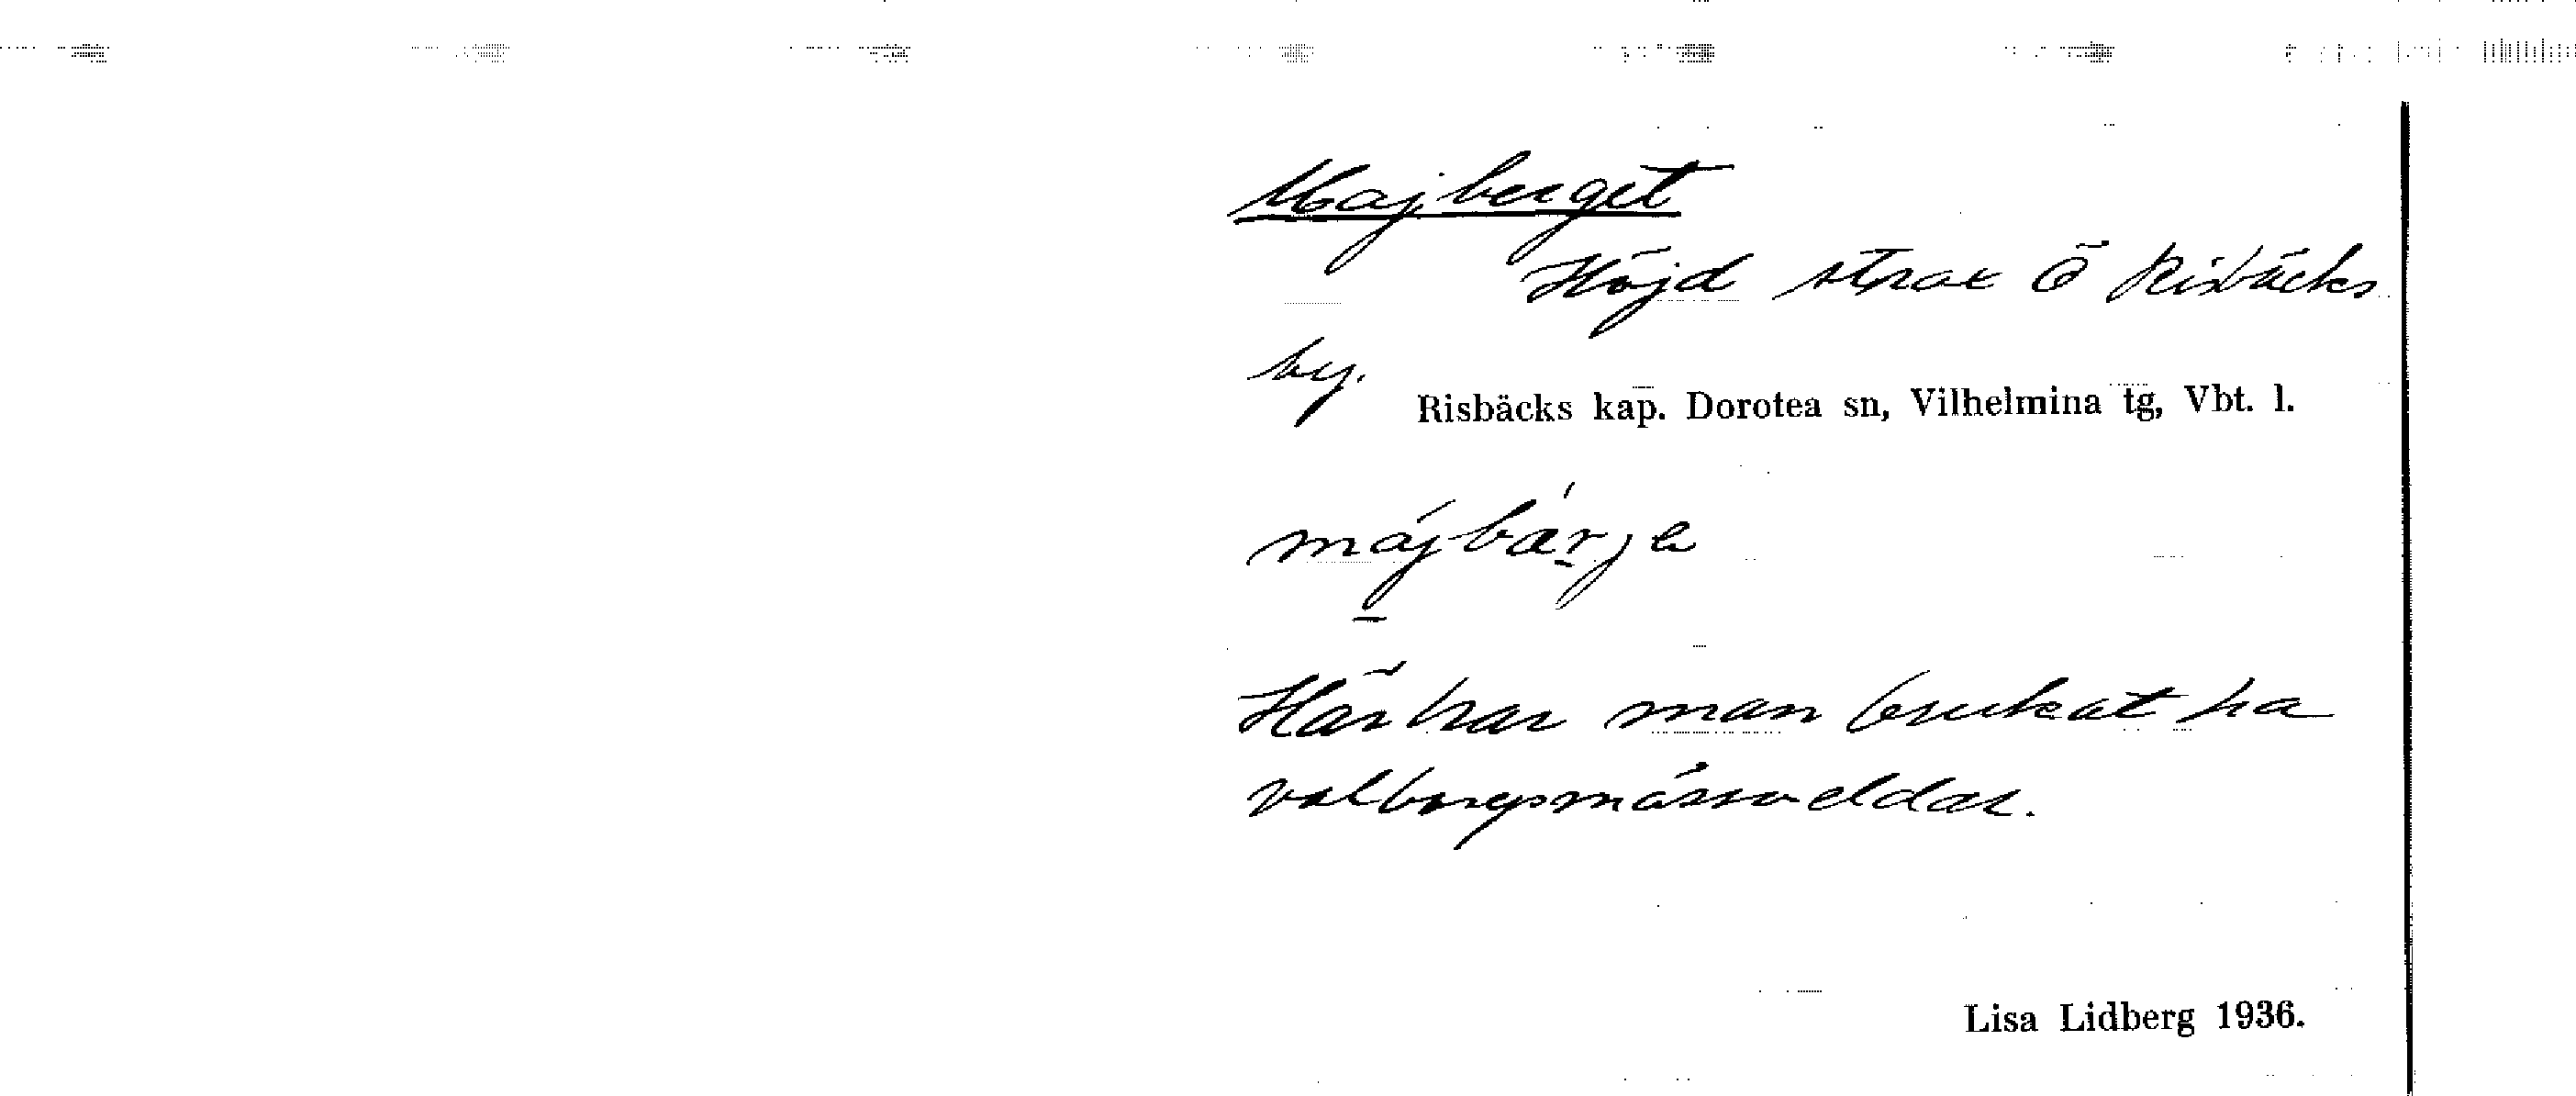 Majberget
Höjd strax Ö Risbäcks
by.
Risbäcks kap. Dorotea sn, Vilhelmina tg, Vbt. l.
májbær̠je
Här har man brukat ha
valborgsmässoeldar.
Lisa Lidberg 1936.